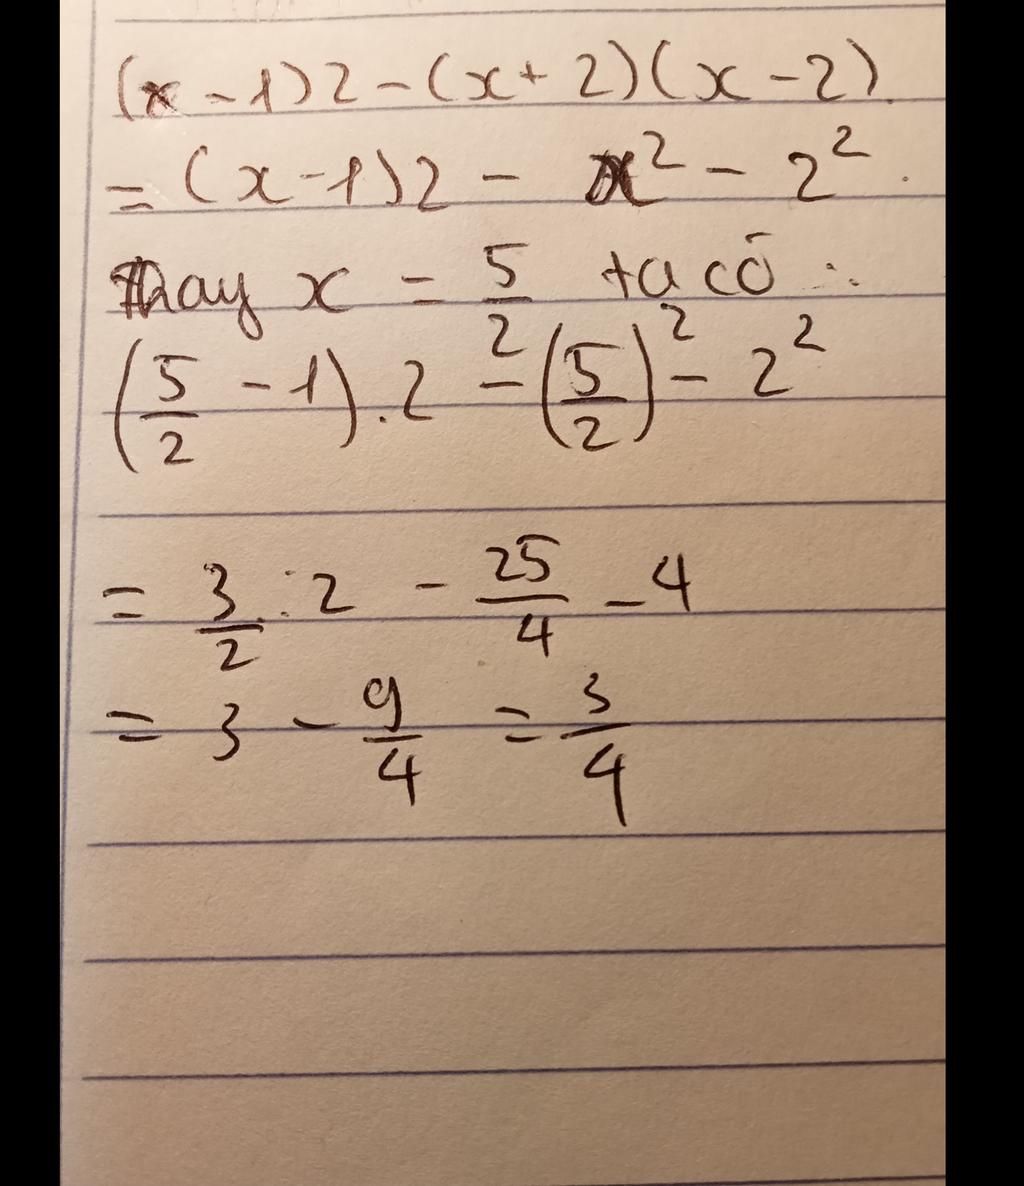 (x - 1)2 - (x + 2)(x - 2)
= (x - 1)2 - x² - 2² .
Thay x = 5/2 ta có :
(5/2 - 1) . 2 - (5/2)² - 2²
= 3/2 : 2 - 25/4 - 4
= 3 - 9/4 = 3/4